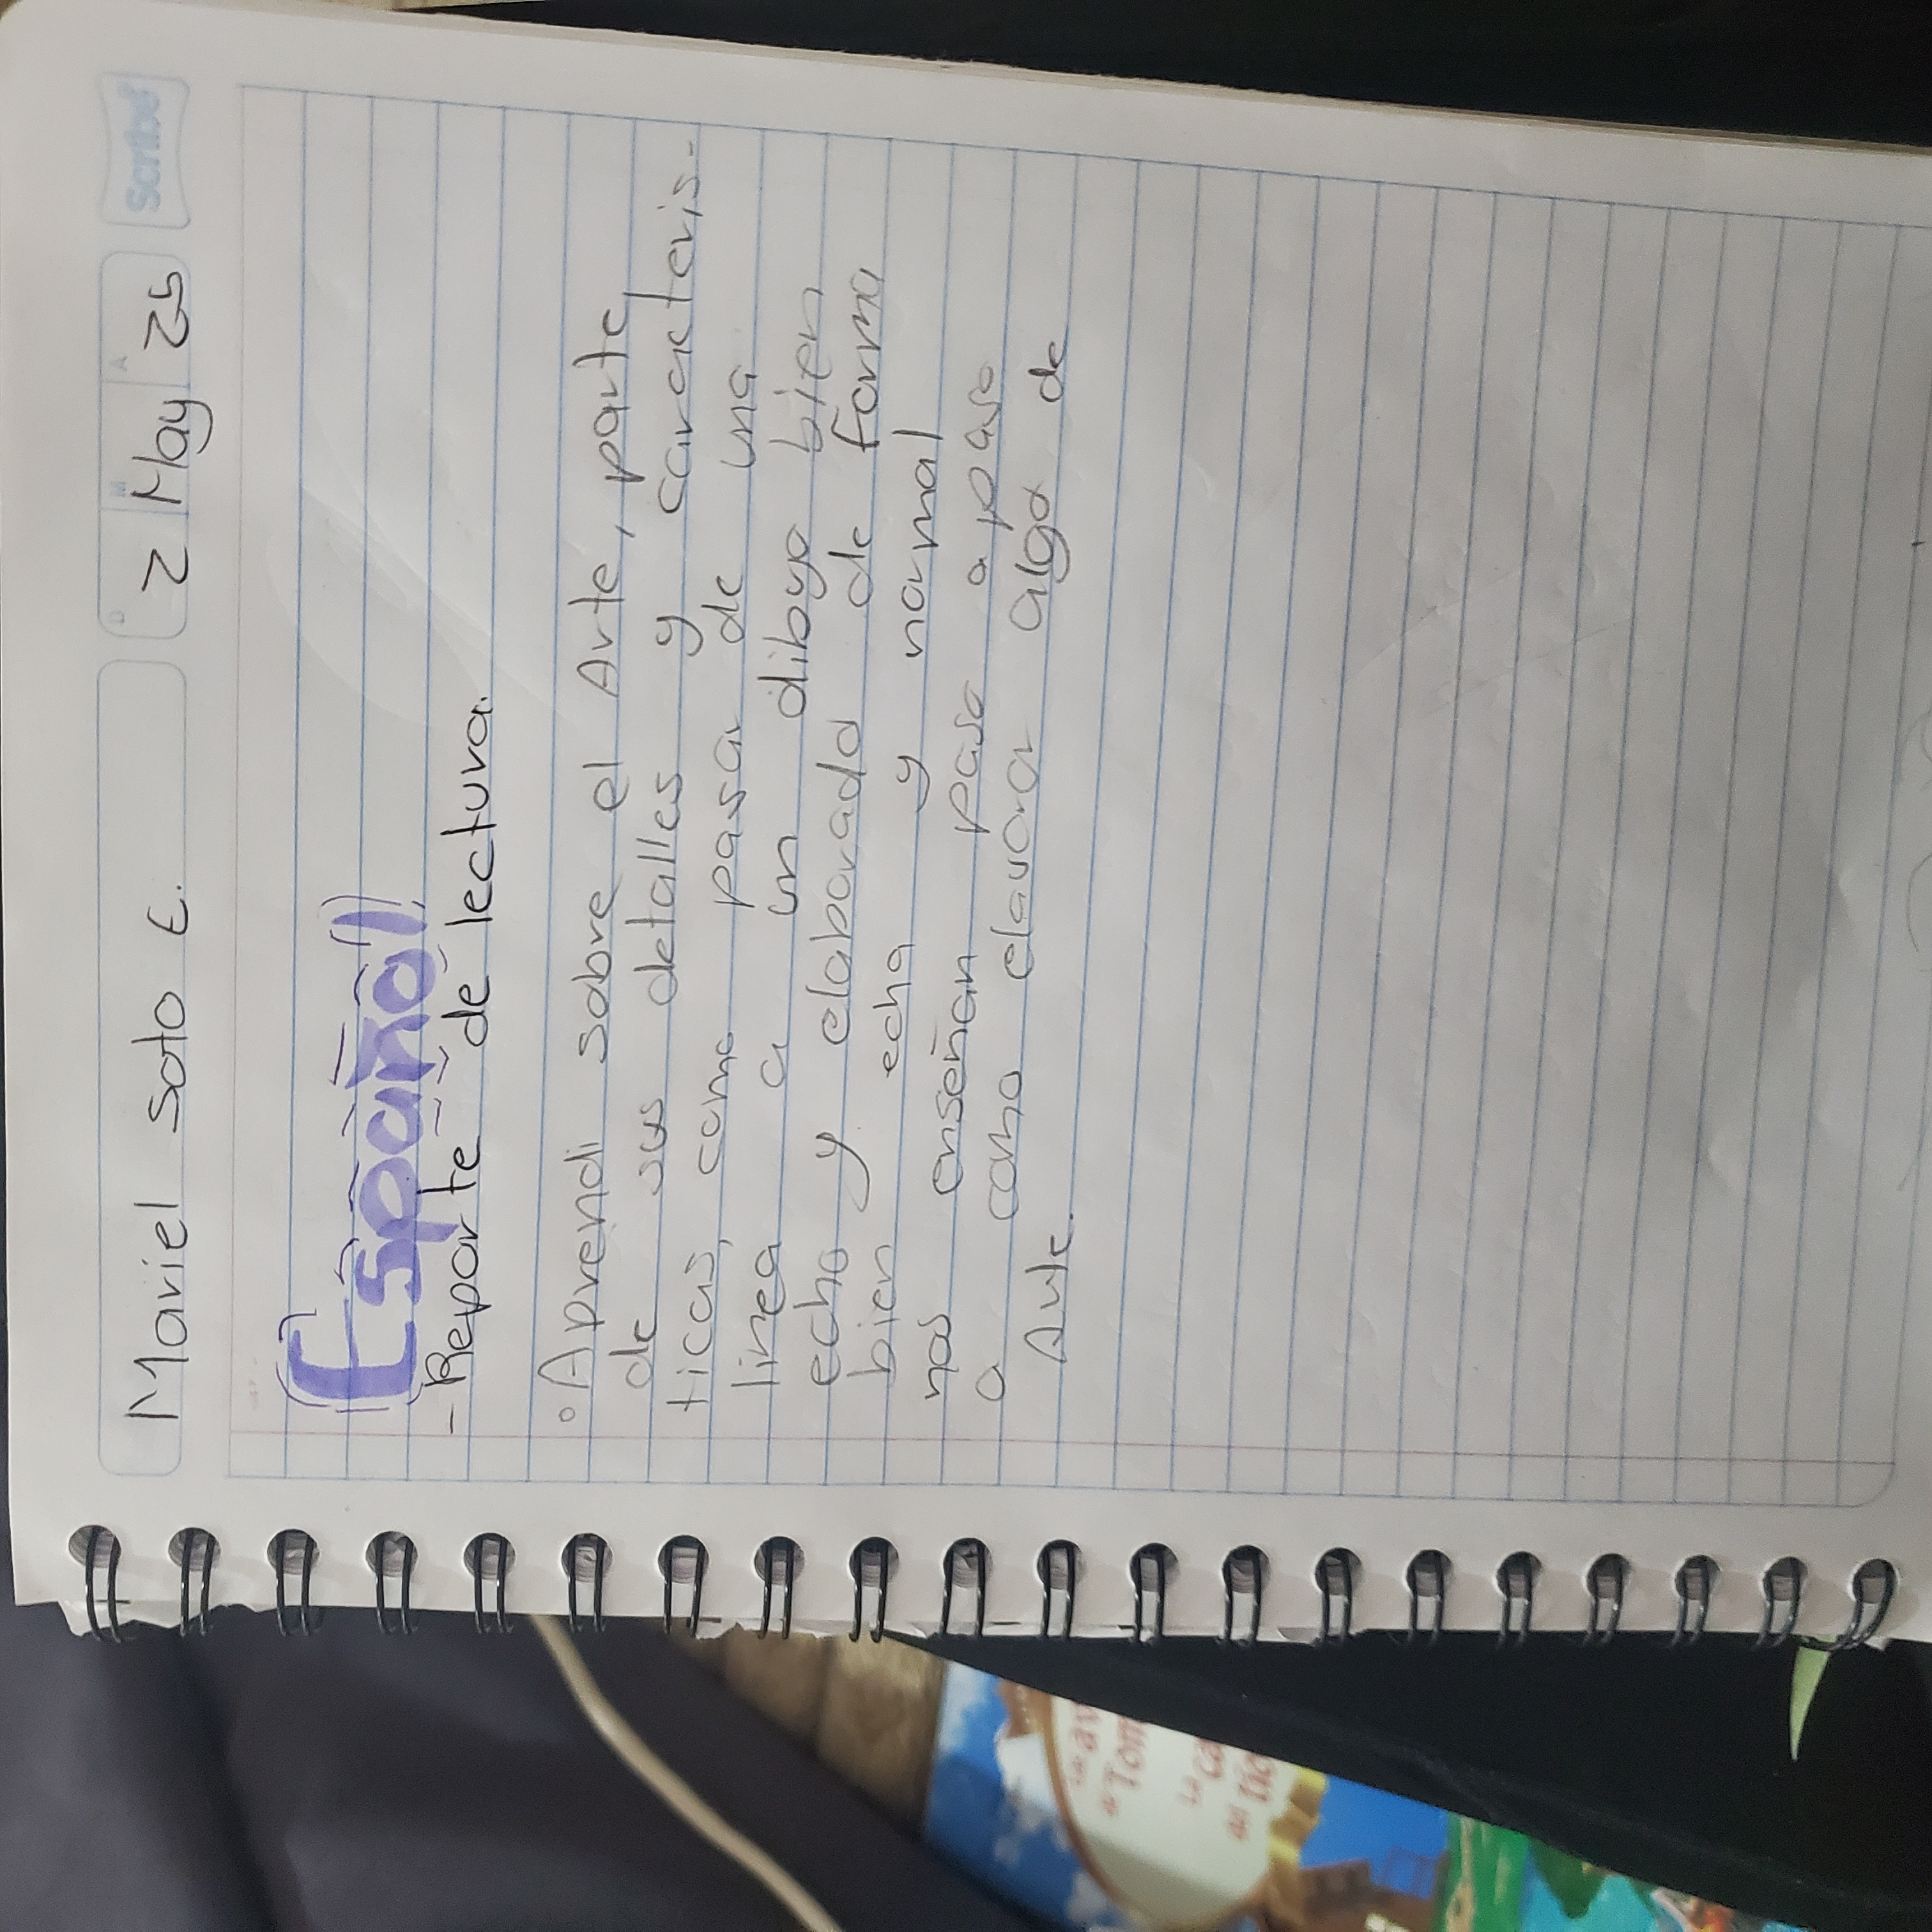 Mariel Soto E.
D M A
2 May 25
Scribe
Español
- Reporte de lectura.
° Aprendi sobre el Arte, parte
de sus detalles y caracteris-
ticas, como pasar de una
linea a un dibujo bien
echo y elaborado de forma
bien echa y normal
nos enseñan paso a paso
a como elavorar algo de
Arte.